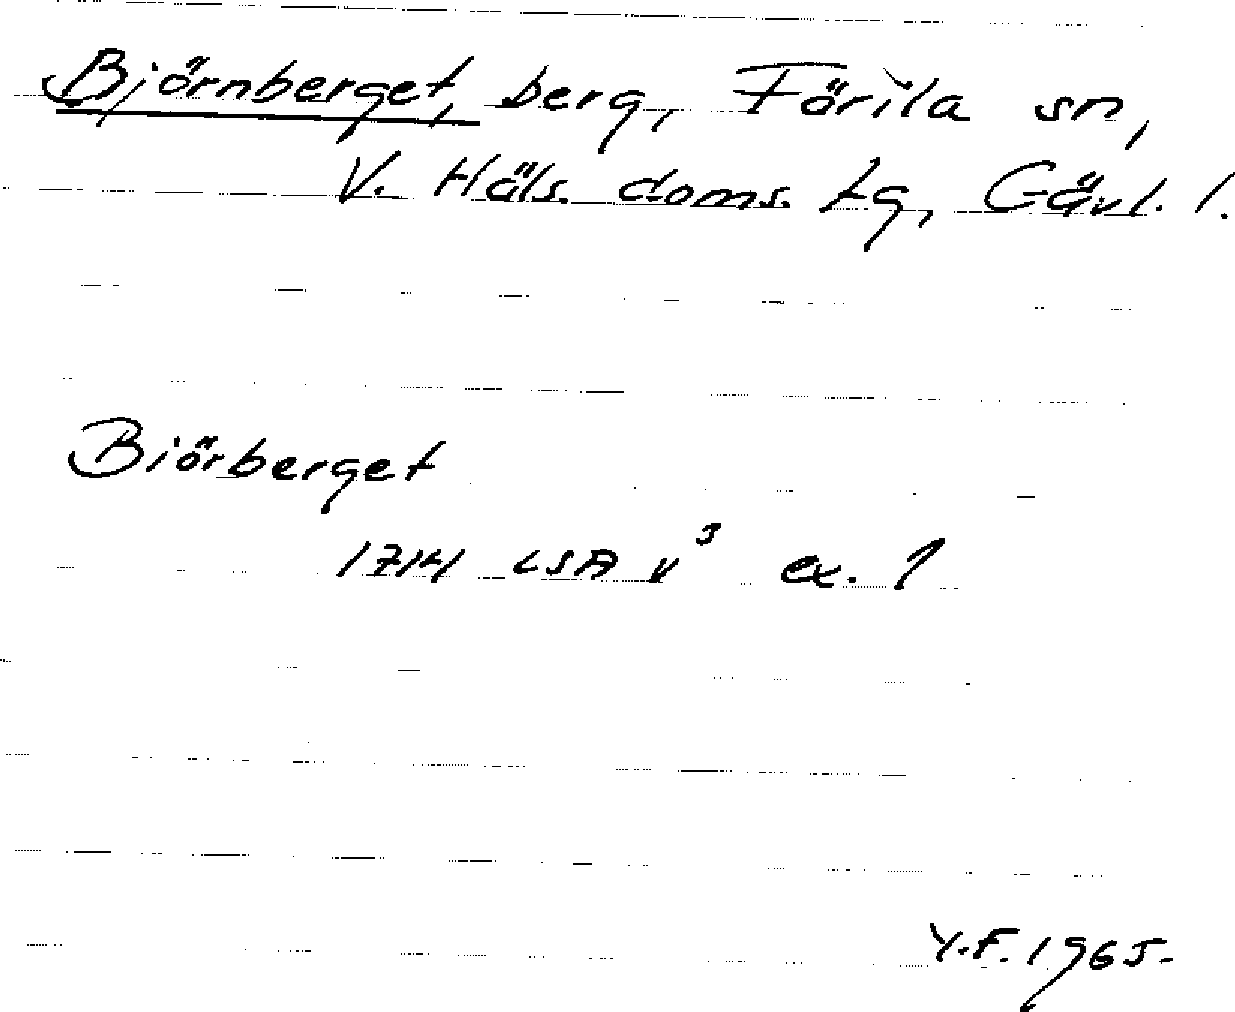 Björnberget, berg, Färila sn,
V. Häls. doms. tg, Gävl. l.
Biörberget
1714 LSA v³ ex. 1
Y.F. 1965.